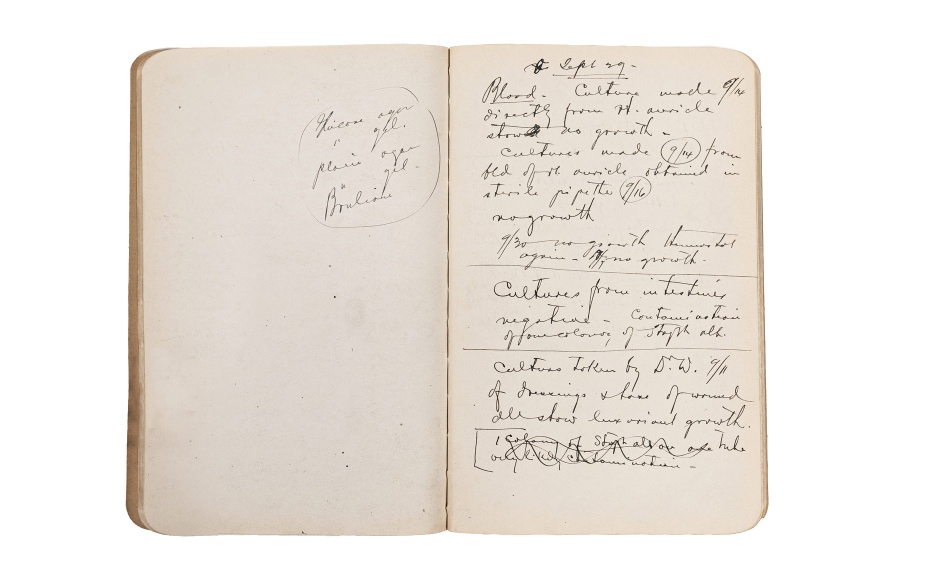 Glucose agar
" gel.
plain agar
" gel.
Bouillon
Sept 29 -
Blood - Culture made 9/14
directly from rt. auricle
shows no growth -
Cultures made 9/14 from
bld of rt auricle obtained in
sterile pipette 9/16
no growth
9/30 no growth thermostat
again - no growth -
Cultures from intestines
negative - Contamination
of four colonies of Staph alb.
Cultures taken by Dr. W. 9/11
of dressings & base of wound
all show luxuriant growth.
1 Colony of Staph alb on one tube
very likely contamination -